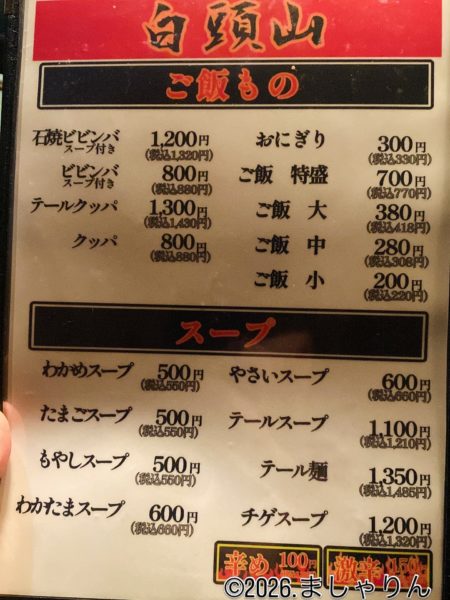 白頭山
ご飯もの
石焼ビビンバ 1,200円
スープ付き (税込1,320円)
ビビンバ 800円
スープ付き (税込880円)
テールクッパ 1,300円
(税込1,430円)
クッパ 800円
(税込880円)
おにぎり 300円
(税込330円)
ご飯 特盛 700円
(税込770円)
ご飯 大 380円
(税込418円)
ご飯 中 280円
(税込308円)
ご飯 小 200円
(税込220円)
スープ
わかめスープ 500円
(税込550円)
たまごスープ 500円
(税込550円)
もやしスープ 500円
(税込550円)
わかたまスープ 600円
(税込660円)
やさいスープ 600円
(税込660円)
テールスープ 1,100円
(税込1,210円)
テール麺 1,350円
(税込1,485円)
チゲスープ 1,200円
(税込1,320円)
辛め 100円
激辛 150円
©2026.ましゃりん